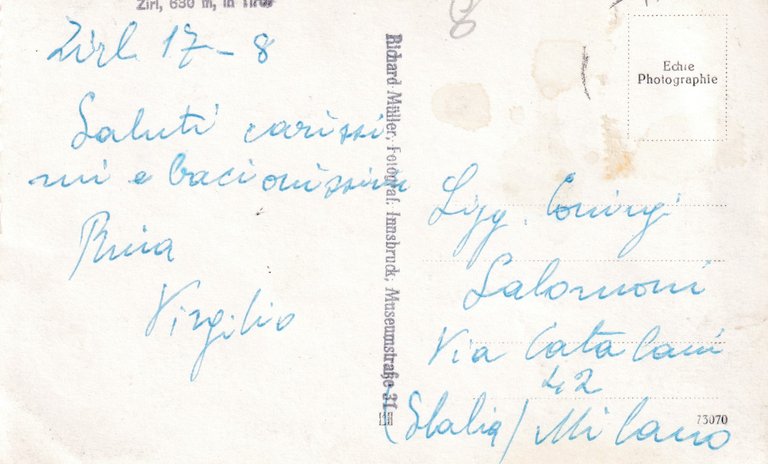 Zirl, 630 m, in Tirol
Zirl 17-8
Saluti carissi
mi e bacionissimi
Virgilio
Richard Müller, Fotograf, Innsbruck, Museumstraße 31
Echte
Photographie
Sigg. Coniugi
Salomoni
Via Catalani
42
(Italia) Milano
73070